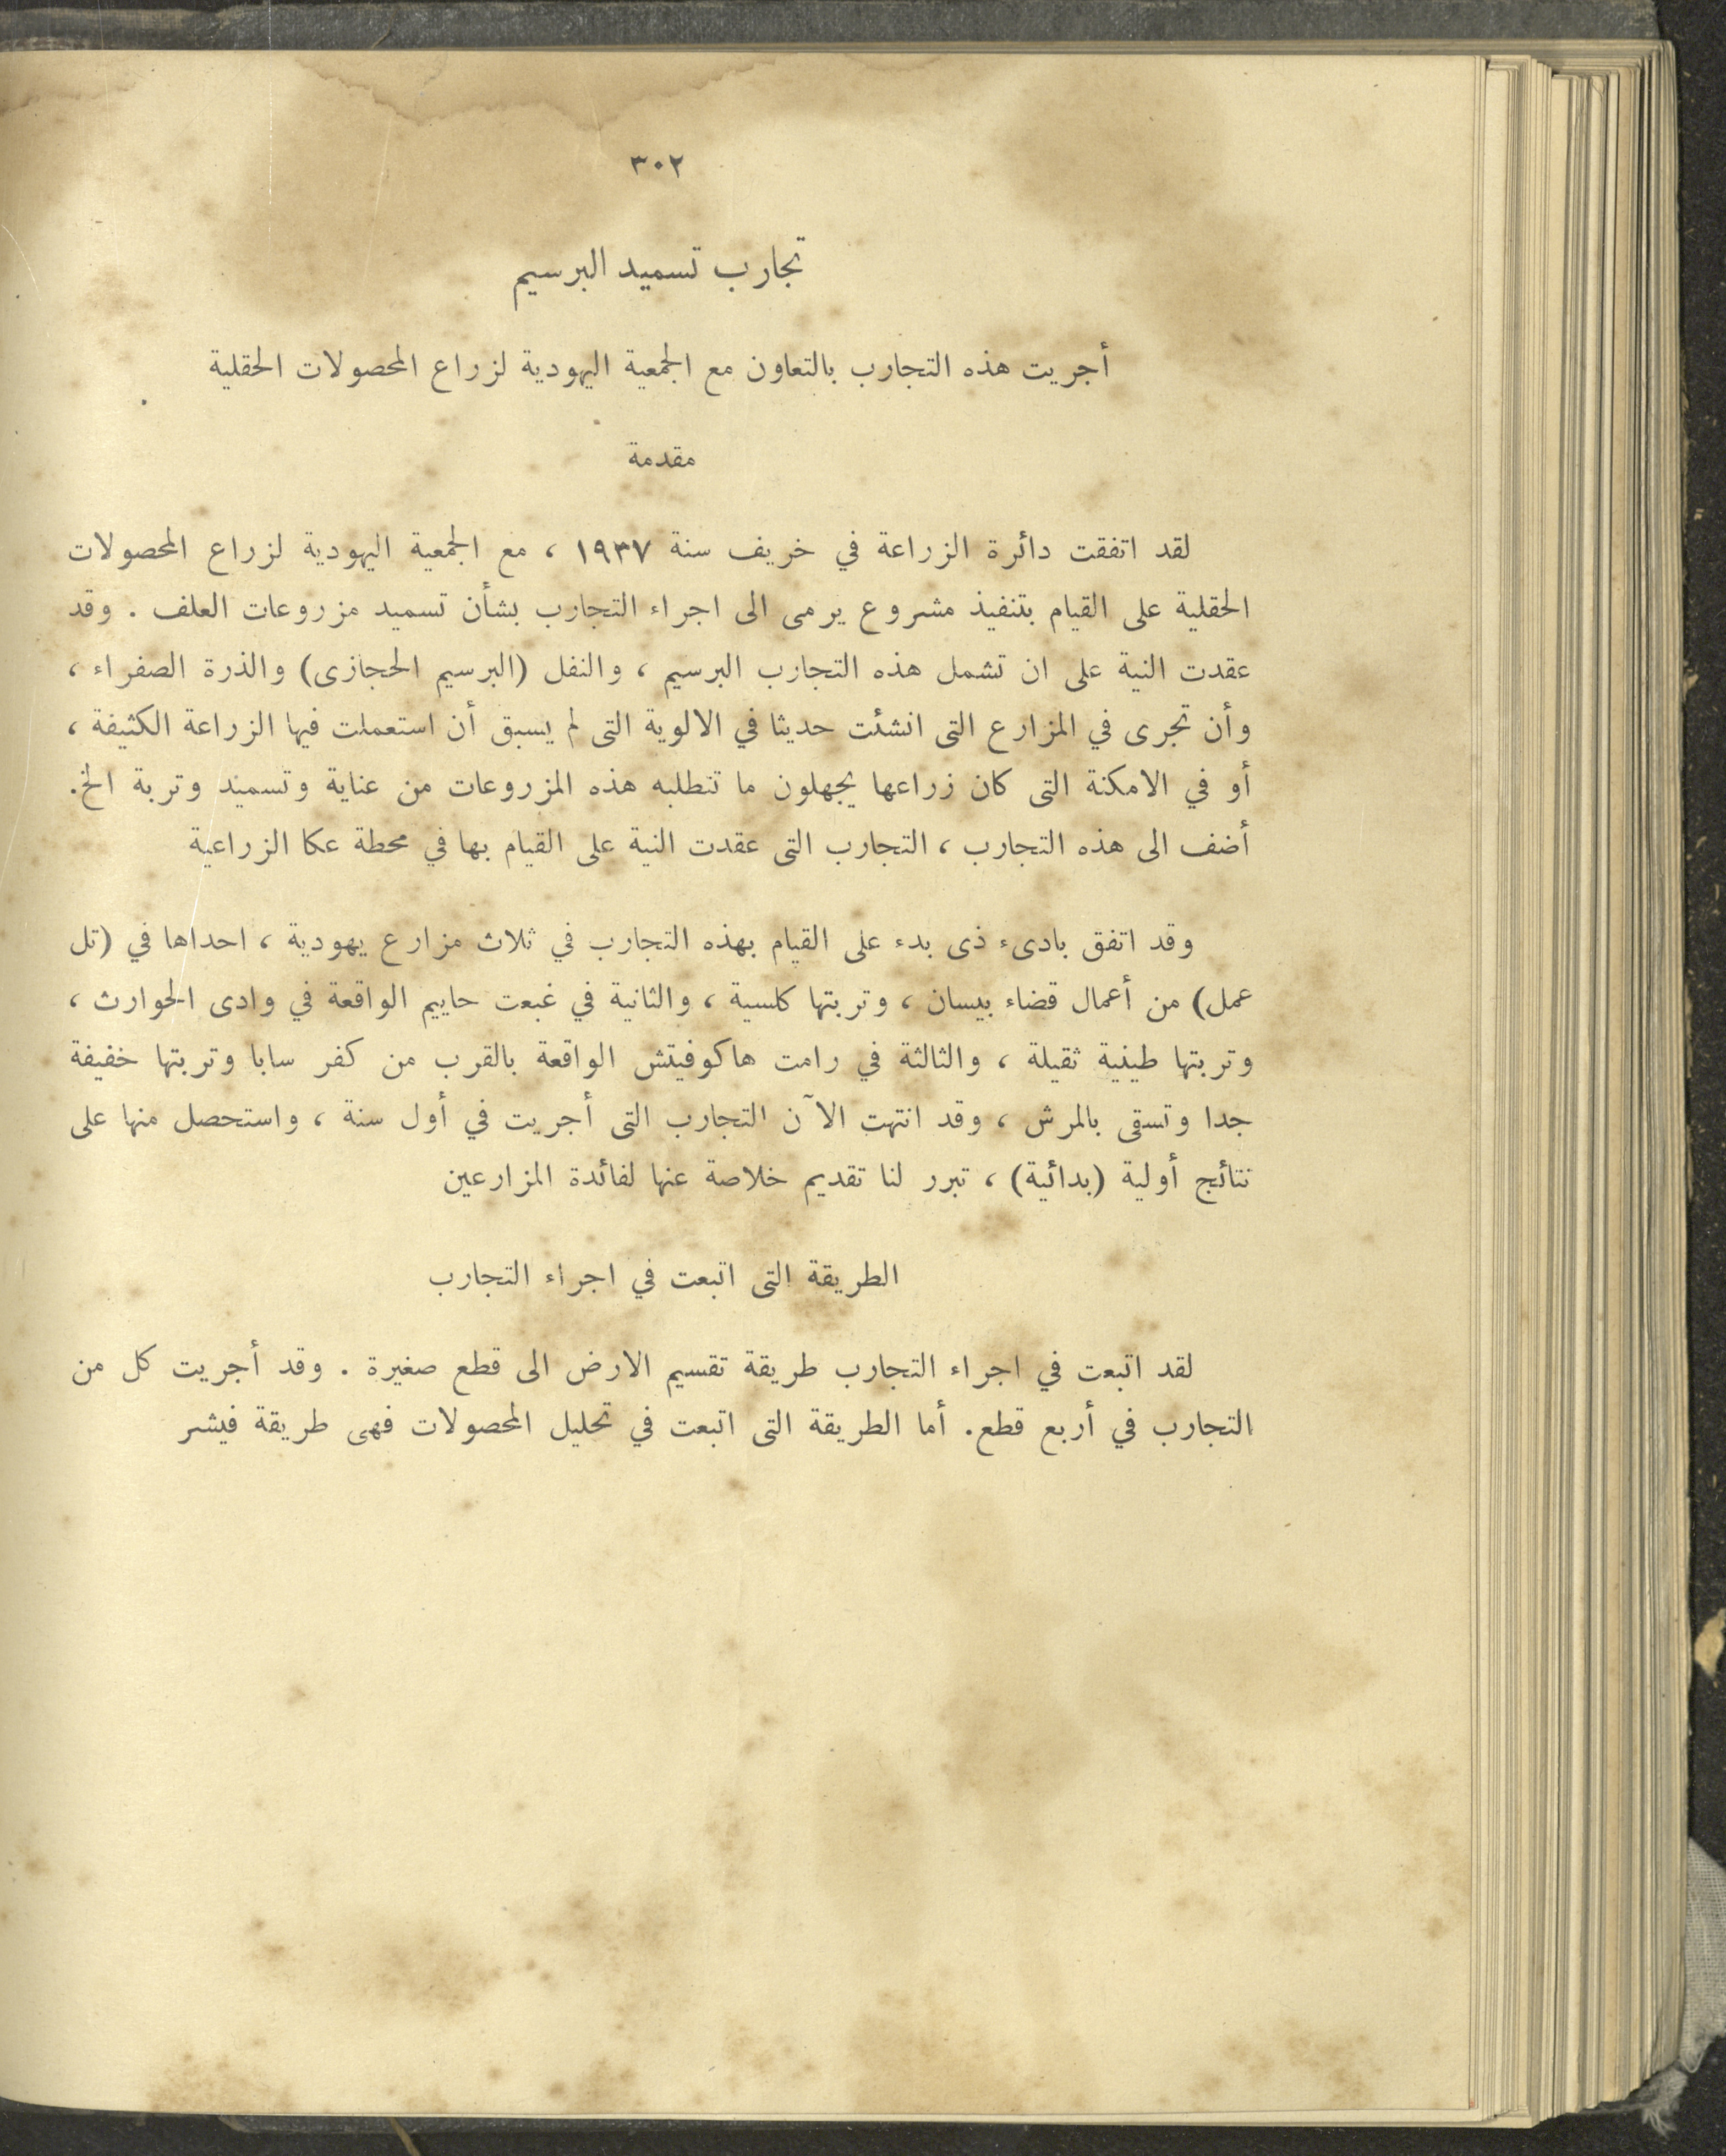 ٣٠٢
تجارب تسميد البرسيم
أجريت هذه التجارب بالتعاون مع الجمعية اليهودية لزراع المحصولات الحقلية
مقدمة
لقد اتفقت دائرة الزراعة في خريف سنة ١٩٣٧ ، مع الجمعية اليهودية لزراع المحصولات
الحقلية على القيام بتنفيذ مشروع يرمى الى اجراء التجارب بشأن تسميد مزروعات العلف . وقد
عقدت النية على ان تشمل هذه التجارب البرسيم ، والنفل (البرسيم الحجازى) والذرة الصفراء ،
وأن تجرى في المزارع التى انشئت حديثا في الالوية التى لم يسبق أن استعملت فيها الزراعة الكثيفة ،
أو في الامكنة التى كان زراعها يجهلون ما تتطلبه هذه المزروعات من عناية وتسميد وتربة الخ.
أضف الى هذه التجارب ، التجارب التى عقدت النية على القيام بها في محطة عكا الزراعية
وقد اتفق بادىء ذى بدء على القيام بهذه التجارب في ثلاث مزارع يهودية ، احداها في (تل
عمل) من أعمال قضاء بيسان ، وتربتها كلسية ، والثانية في غبعت حاييم الواقعة في وادى الحوارث ،
وتربتها طينية ثقيلة ، والثالثة في رامت هاكوفيتش الواقعة بالقرب من كفر سابا وتربتها خفيفة
جدا وتسقى بالمرش ، وقد انتهت الآن التجارب التى أجريت في أول سنة ، واستحصل منها على
نتائج أولية (بدائية) ، تبرر لنا تقديم خلاصة عنها لفائدة المزارعين
الطريقة التى اتبعت في اجراء التجارب
لقد اتبعت في اجراء التجارب طريقة تقسيم الارض الى قطع صغيرة . وقد أجريت كل من
التجارب في أربع قطع. أما الطريقة التى اتبعت في تحليل المحصولات فهى طريقة فيشر